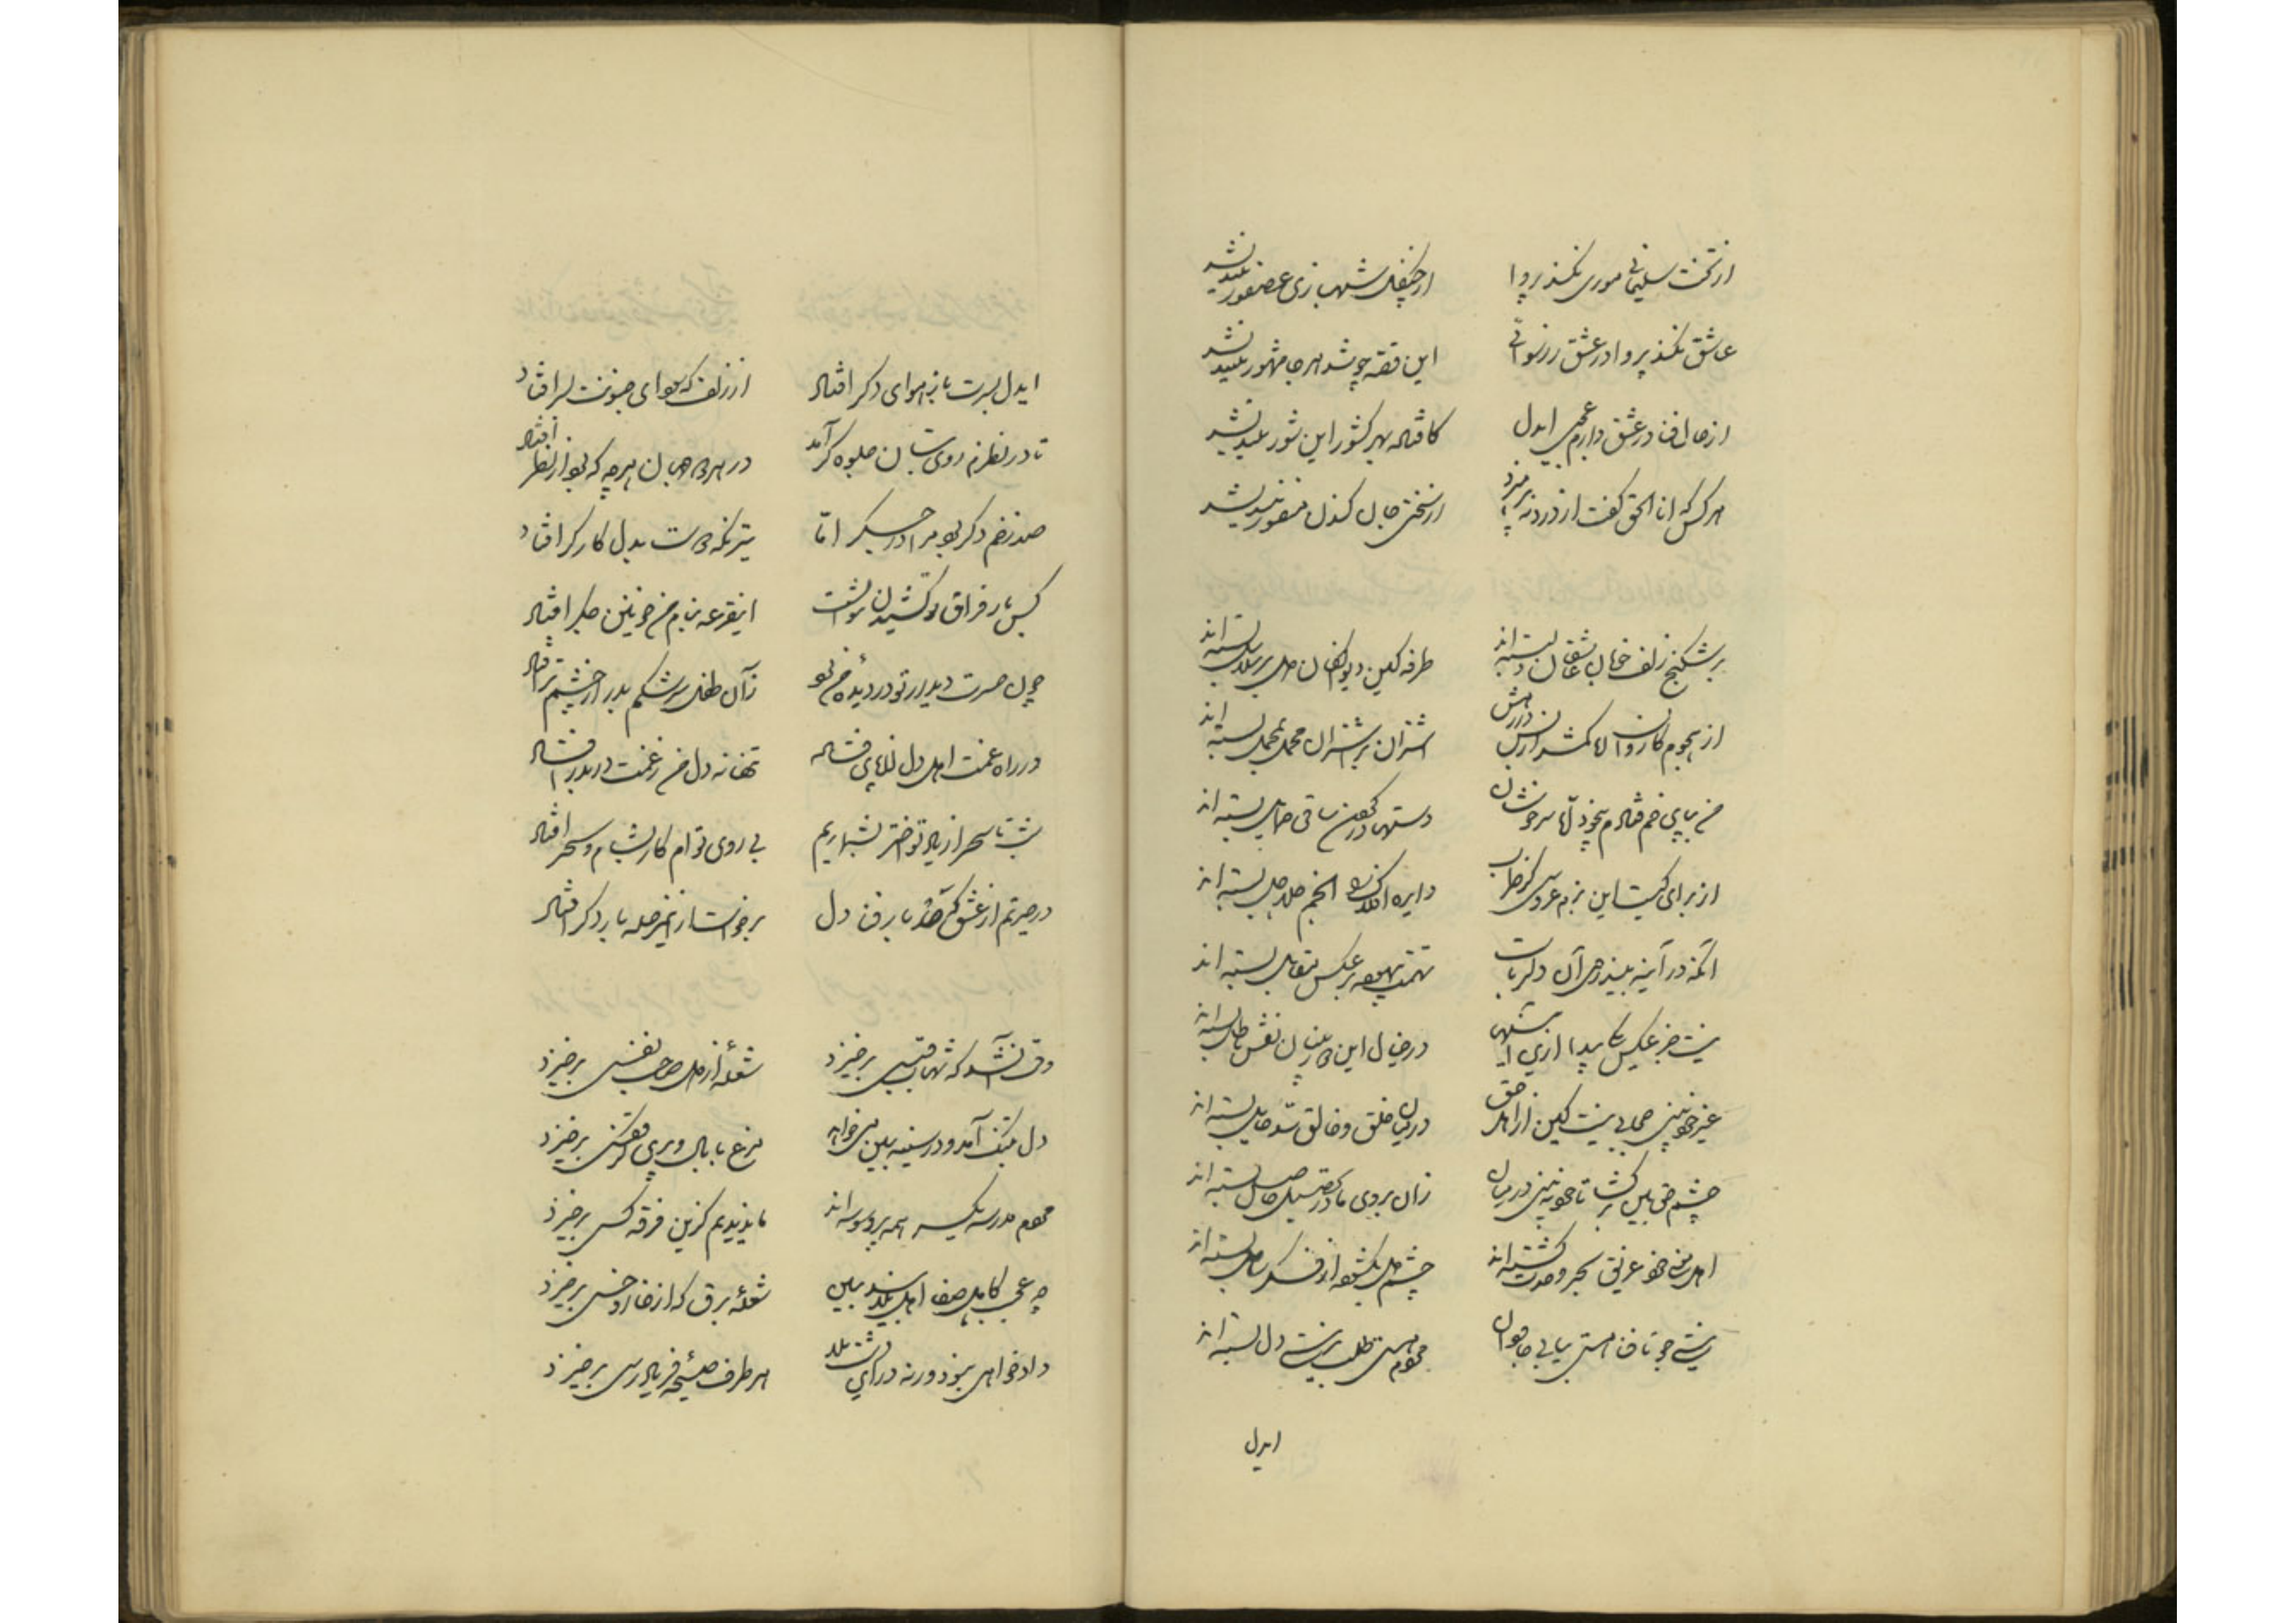 از تخت سلیمانی موری نکند پروا از چنگل شهبازی عصفور نیندیشد
عاشق نکند پروا در عشق ز رسوائی این قصه چو شد هر جا مشهور نیندیشد
از حال فنا در عشق دارم عجبی ایدل کافتاد بهر کشور این شور نیندیشد
هر کس که انا الحق گفت از دار نپرهیزد از سختی جان کندن منصور نیندیشد
بر شکنج زلف خوبان عاشقان دل بسته‌اند طرفه کین دیوانگان دل بر سلاسل بسته‌اند
از هجوم کاروان لا کمشد از اشتران بر اشتران محمل بمحمل بسته‌اند
من بپای خم فتادم بیخود اما سرخوشان دستها در گردن ساقی حمایل بسته‌اند
از برای کیست این بزم عروسی کز دایره افلاک انجم جلاجل بسته‌اند
آنکه در آینه بیند روی آن دلرباست تهمت بیهوده بر عکس مقابل بسته‌اند
نیست جز عکس پیدا در خیال این نقش باطل بسته‌اند
غیر خودبینی حجابی نیست لیکن ز اهل حق در میان خلق و خالق سد حایل بسته‌اند
چشم حق بین بر گشا تا خود نبینی در میان زان بروی ما در تحصیل حاصل بسته‌اند
اهل معنی خود غریق بحر وحدت گشته‌اند چشم دل بگشوده از فکر ساحل بسته‌اند
نیستی جو تا فنا هستی بیابی جاودان محرم هستی طلب بر نیستی دل بسته‌اند
ایدل
ایدل بسرت باز هوای دگر افتاد از زلف که سودای جنونت بسر افتاد
تا در نظرم روی بتان جلوه گر آمد در هر دو جهان هر چه که بود از نظر افتاد
صد زخم دگر بود مرا در جگر اما تیر نگه دوست بدل کارگر افتاد
کس بار فراق تو کشیدن نتوانست این قرعه بنام من خونین جگر افتاد
چون حسرت دیدار تو در دیده من بود زان طفل سرشکم بدر از چشم تر افتاد
در راه غمت اهل دل از پای فتاده تنها نه دل من ز غمت در بدر افتاد
شب تا سحر از یاد تو اختر بشماریم بی روی توام کار بشام و سحر افتاد
در حیرتم از عشق که آخر بار فنا دل برخواست از این مرحله بار دگر افتاد
وقت آنشد که شهاب قبسی برخیزد شعله از دل صاحب نفسی برخیزد
دل بتنگ آمد و در سینه میخواهد مرغ با بال و پری کز قفسی برخیزد
محرم مدرسه یکسر همه پر وسوسه‌اند ما ندیدیم کزین فرقه کسی برخیزد
چه عجب کاهل صفا اهل بلا شعله برق که از خار و خسی برخیزد
دادخواهی نبود ورنه در این دشت بلا هر طرف صیحه فریادرسی برخیزد